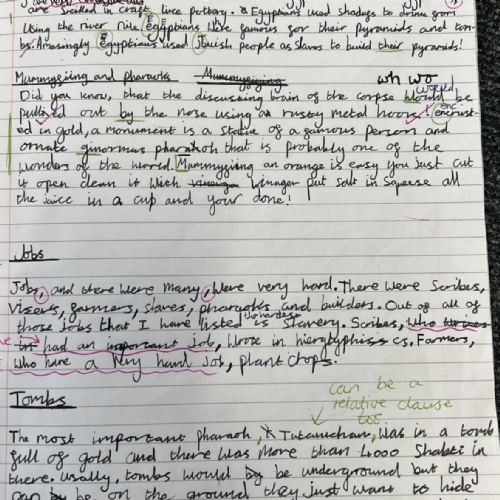 are scribed in craft like pottery. Egyptians used Shadufs to drink from
Using the river Nile Egyptians were famous for their pyramids and tom-
bs. Amasingly Egyptians used Jewish people as slaves to build their pyramids!
Mummyfiing and pharaohs
wh wo
would
Did you know, that the discussting brain of the corpse would be
pulled out by the nose using a rusty metal hoors! encrust-
enc
ed in Gold, a monument is a statue of a famous person and
ornate ginormus pharaohoh that is probably one of the
wonders of the world. Mummyfing an orange is easy you just cut
it open clean it with vineger put salt in squeese all
the juice in a cup and your done!
Jobs
Jobs, and there were many, were very hard. There were Scribes,
Viserts, farmers, slaves, pharaohs and builders. Out of all of
those Jobs that I have listed the hardest is Slavery. Scribes, who
had an important job, wrote in hieroglyphiss cs. Farmers,
who have a very hard job, plant chops.
can be a
relative clause
too
Tombs
The most important pharaoh, Tutancuhan, was in a tomb
full of gold and there was more than 4000 Shabti in
there. usally, tombs would by be underground but they
can by be on the ground they just want to hide